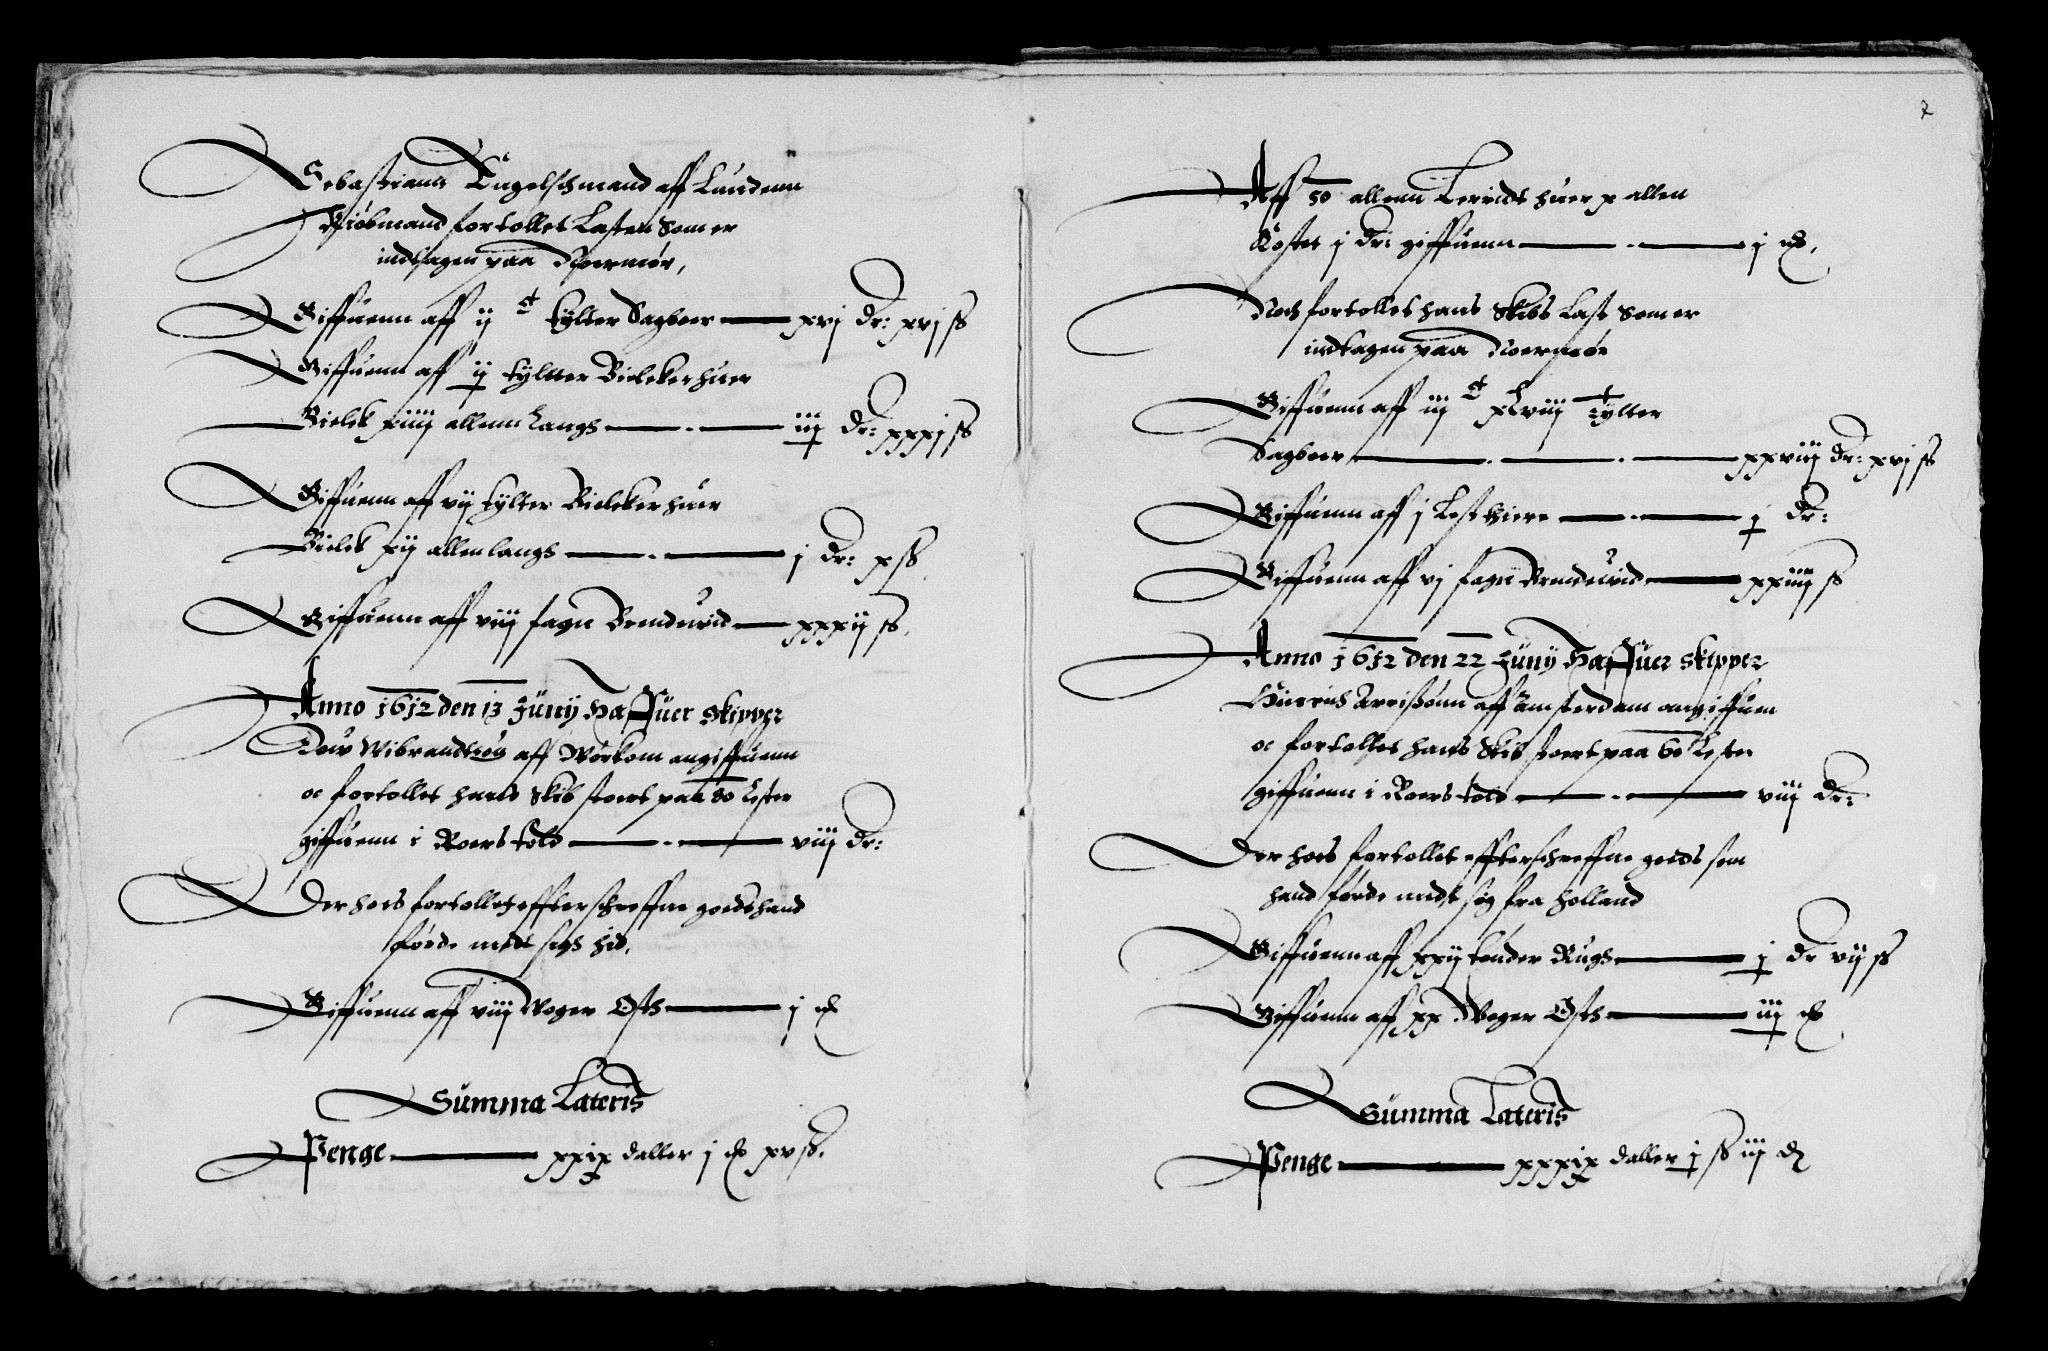 Sebastiann Engelschmand aff Lundenn
Kiöbmand fortollet Lasten Som er
indtagen paa Noermör,
Giffuenn aff ij c tylter Sagboer — xvj dr: xvj ß
Giffuenn aff ij tyltter Bielcker huer
Bielck xiiij allenn Langs — iij dr: xxxj ß
Giffuenn aff vij tylter Bielcker huer
Bielck xij allen langs — j dr: x ß
Giffuenn aff viij fagn Brenduid — xxxij ß.
Anno 1612 den 13 Juny Haffuer Skipper
Douw Wibrandtzøn aff Workom angiffuenn
oc fortollet hans Skib stoert paa 80 Lester
giffuenn i Roers told — viij dr:
Der hoes fortollet effterschreffne goeds hand
förde medt sigh hid.
Giffuenn aff viij Woger Osth — j
Summa Lateris
Penge — xxix daller j xv ß.
2
Aff 50 allenn Leridt huer x allen
Koster j dr: giffuenn — j
Noch fortollet hans Skibs Last Som er
indtagen paa Noermör
Giffuenn aff iij c xlviij tylter
Sagboer — xxviij dr: xvj ß
Giffuenn aff j Lest thiere — j dr:
Giffuenn aff vj fagn Brenduid — xxiiij ß
Anno 1612 den 22 Juny Haffuer Skipper
Hinrich Arrißönn aff Amsterdam angiffuen
oc fortollet hans Skib stoert paa 60 Lester
giffuenn i Roers told — viij dr:
Der hoes fortollet effterschreffne goeds som
hand förde medt sig fra Holland
Giffuenn aff xxij tønder Rugh — j dr vij ß
Giffuenn aff xx Woger Osth — iij
Summa Lateris
Penge — xxxix daller j ß iij